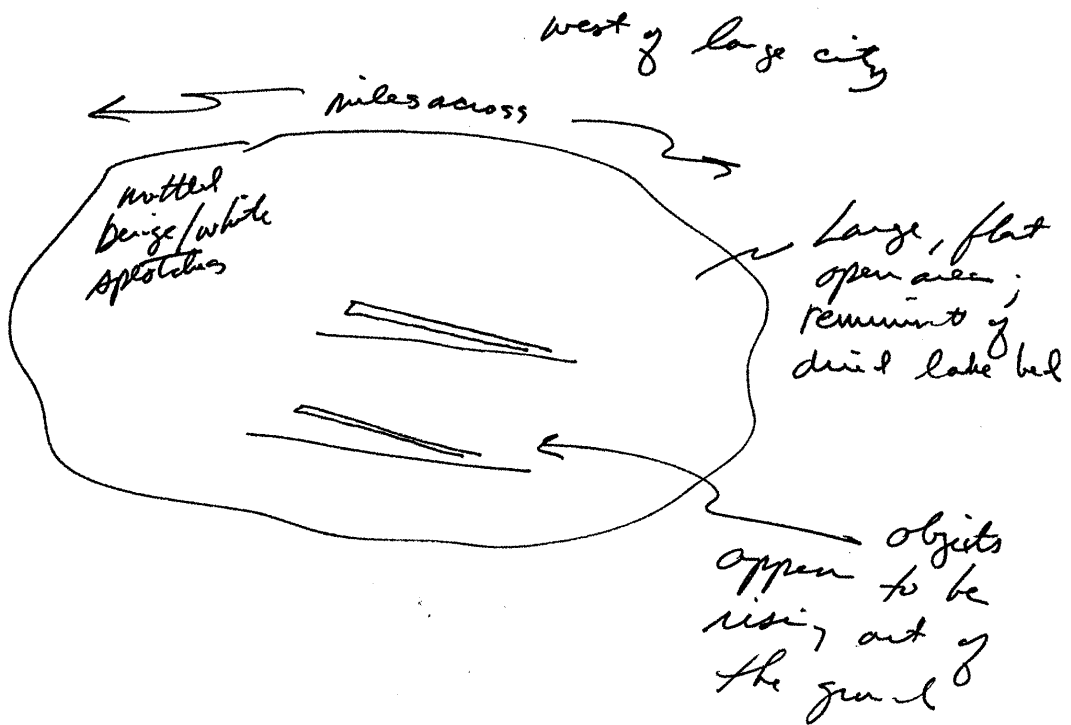 west of large city
miles across
mottled
beige/white
splotches
Large, flat
open area;
remnant of
dried lake bed
objects
appear to be
rising out of
the ground